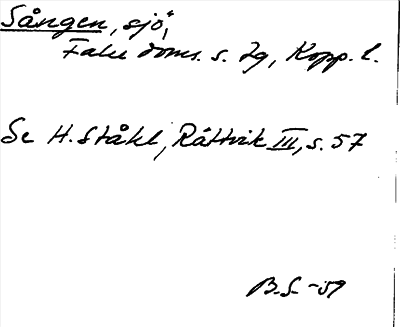 Sången, sjö,
Falu doms. s. lg, Kopp. l.
Se H. Ståhl, Rättvik III, s. 57
B.S. -59